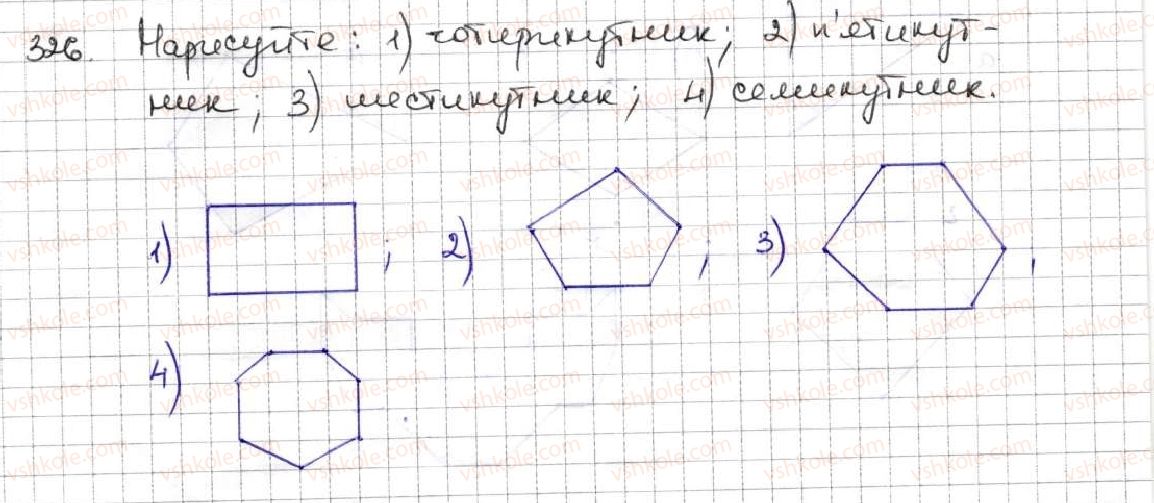 326. Нарисуйте: 1) чотирикутник; 2) п'ятикут-
ник; 3) шестикутник; 4) семикутник.
1) ; 2) ; 3) ,
4)
vshkole.com